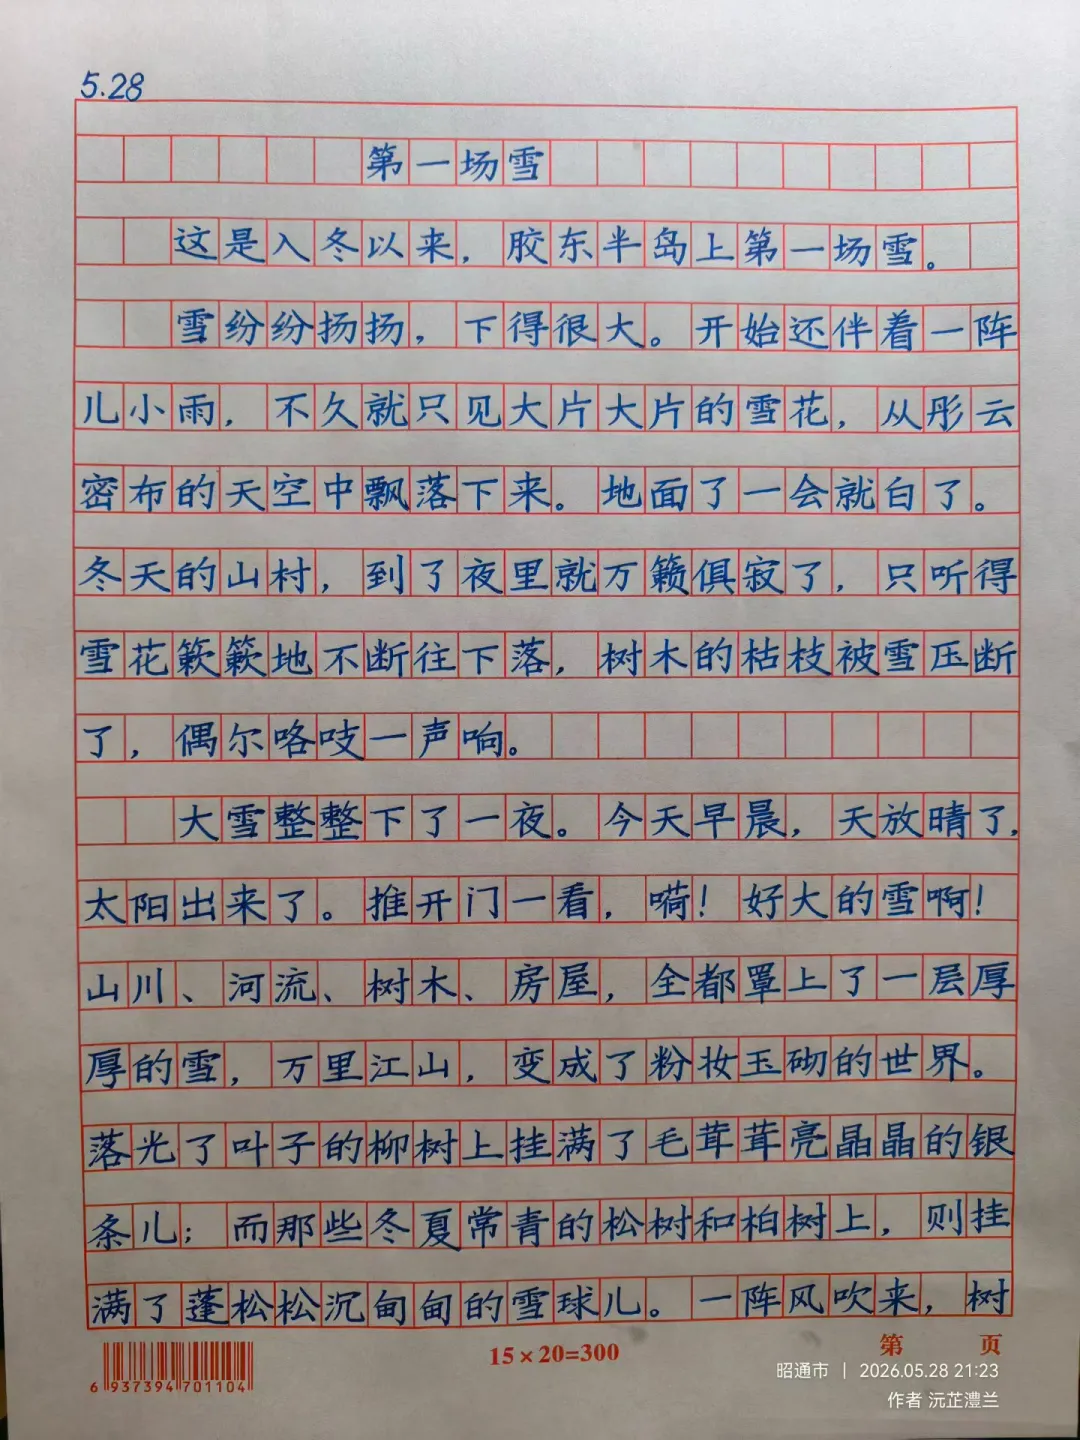 5.28
第一场雪
这是入冬以来，胶东半岛上第一场雪。
雪纷纷扬扬，下得很大。开始还伴着一阵
儿小雨，不久就只见大片大片的雪花，从彤云
密布的天空中飘落下来。地面了一会就白了。
冬天的山村，到了夜里就万籁俱寂了，只听得
雪花簌簌地不断往下落，树木的枯枝被雪压断
了，偶尔咯吱一声响。
大雪整整下了一夜。今天早晨，天放晴了，
太阳出来了。推开门一看，嗬！好大的雪啊！
山川、河流、树木、房屋，全都罩上了一层厚
厚的雪，万里江山，变成了粉妆玉砌的世界。
落光了叶子的柳树上挂满了毛茸茸亮晶晶的银
条儿；而那些冬夏常青的松树和柏树上，则挂
满了蓬松松沉甸甸的雪球儿。一阵风吹来，树
6 937394 701104
15×20=300
第 页
昭通市 | 2026.05.28 21:23
作者 沅芷澧兰